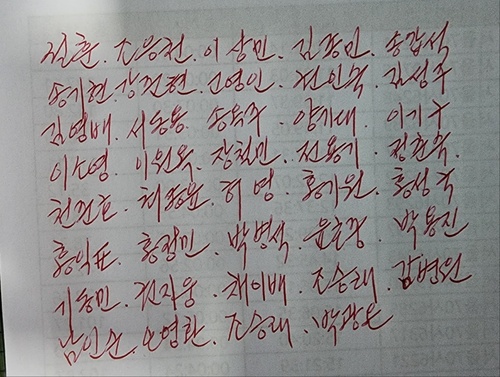 전훈. 조응천. 이상민. 김종민. 송갑석
송기헌. 강진현. 신영인. 전인숙. 김성주
김영배. 서동용. 송옥주. 양기대. 이기구
이소영. 이원욱. 장철민. 전용기. 정춘숙.
천준호. 최종윤. 허영. 홍기원. 홍성국
홍익표. 홍정민. 박병석. 윤호중. 박용진
기동민. 전재웅. 채이배. 조승래. 김병원
남인순. 오영환. 조승래. 박광온